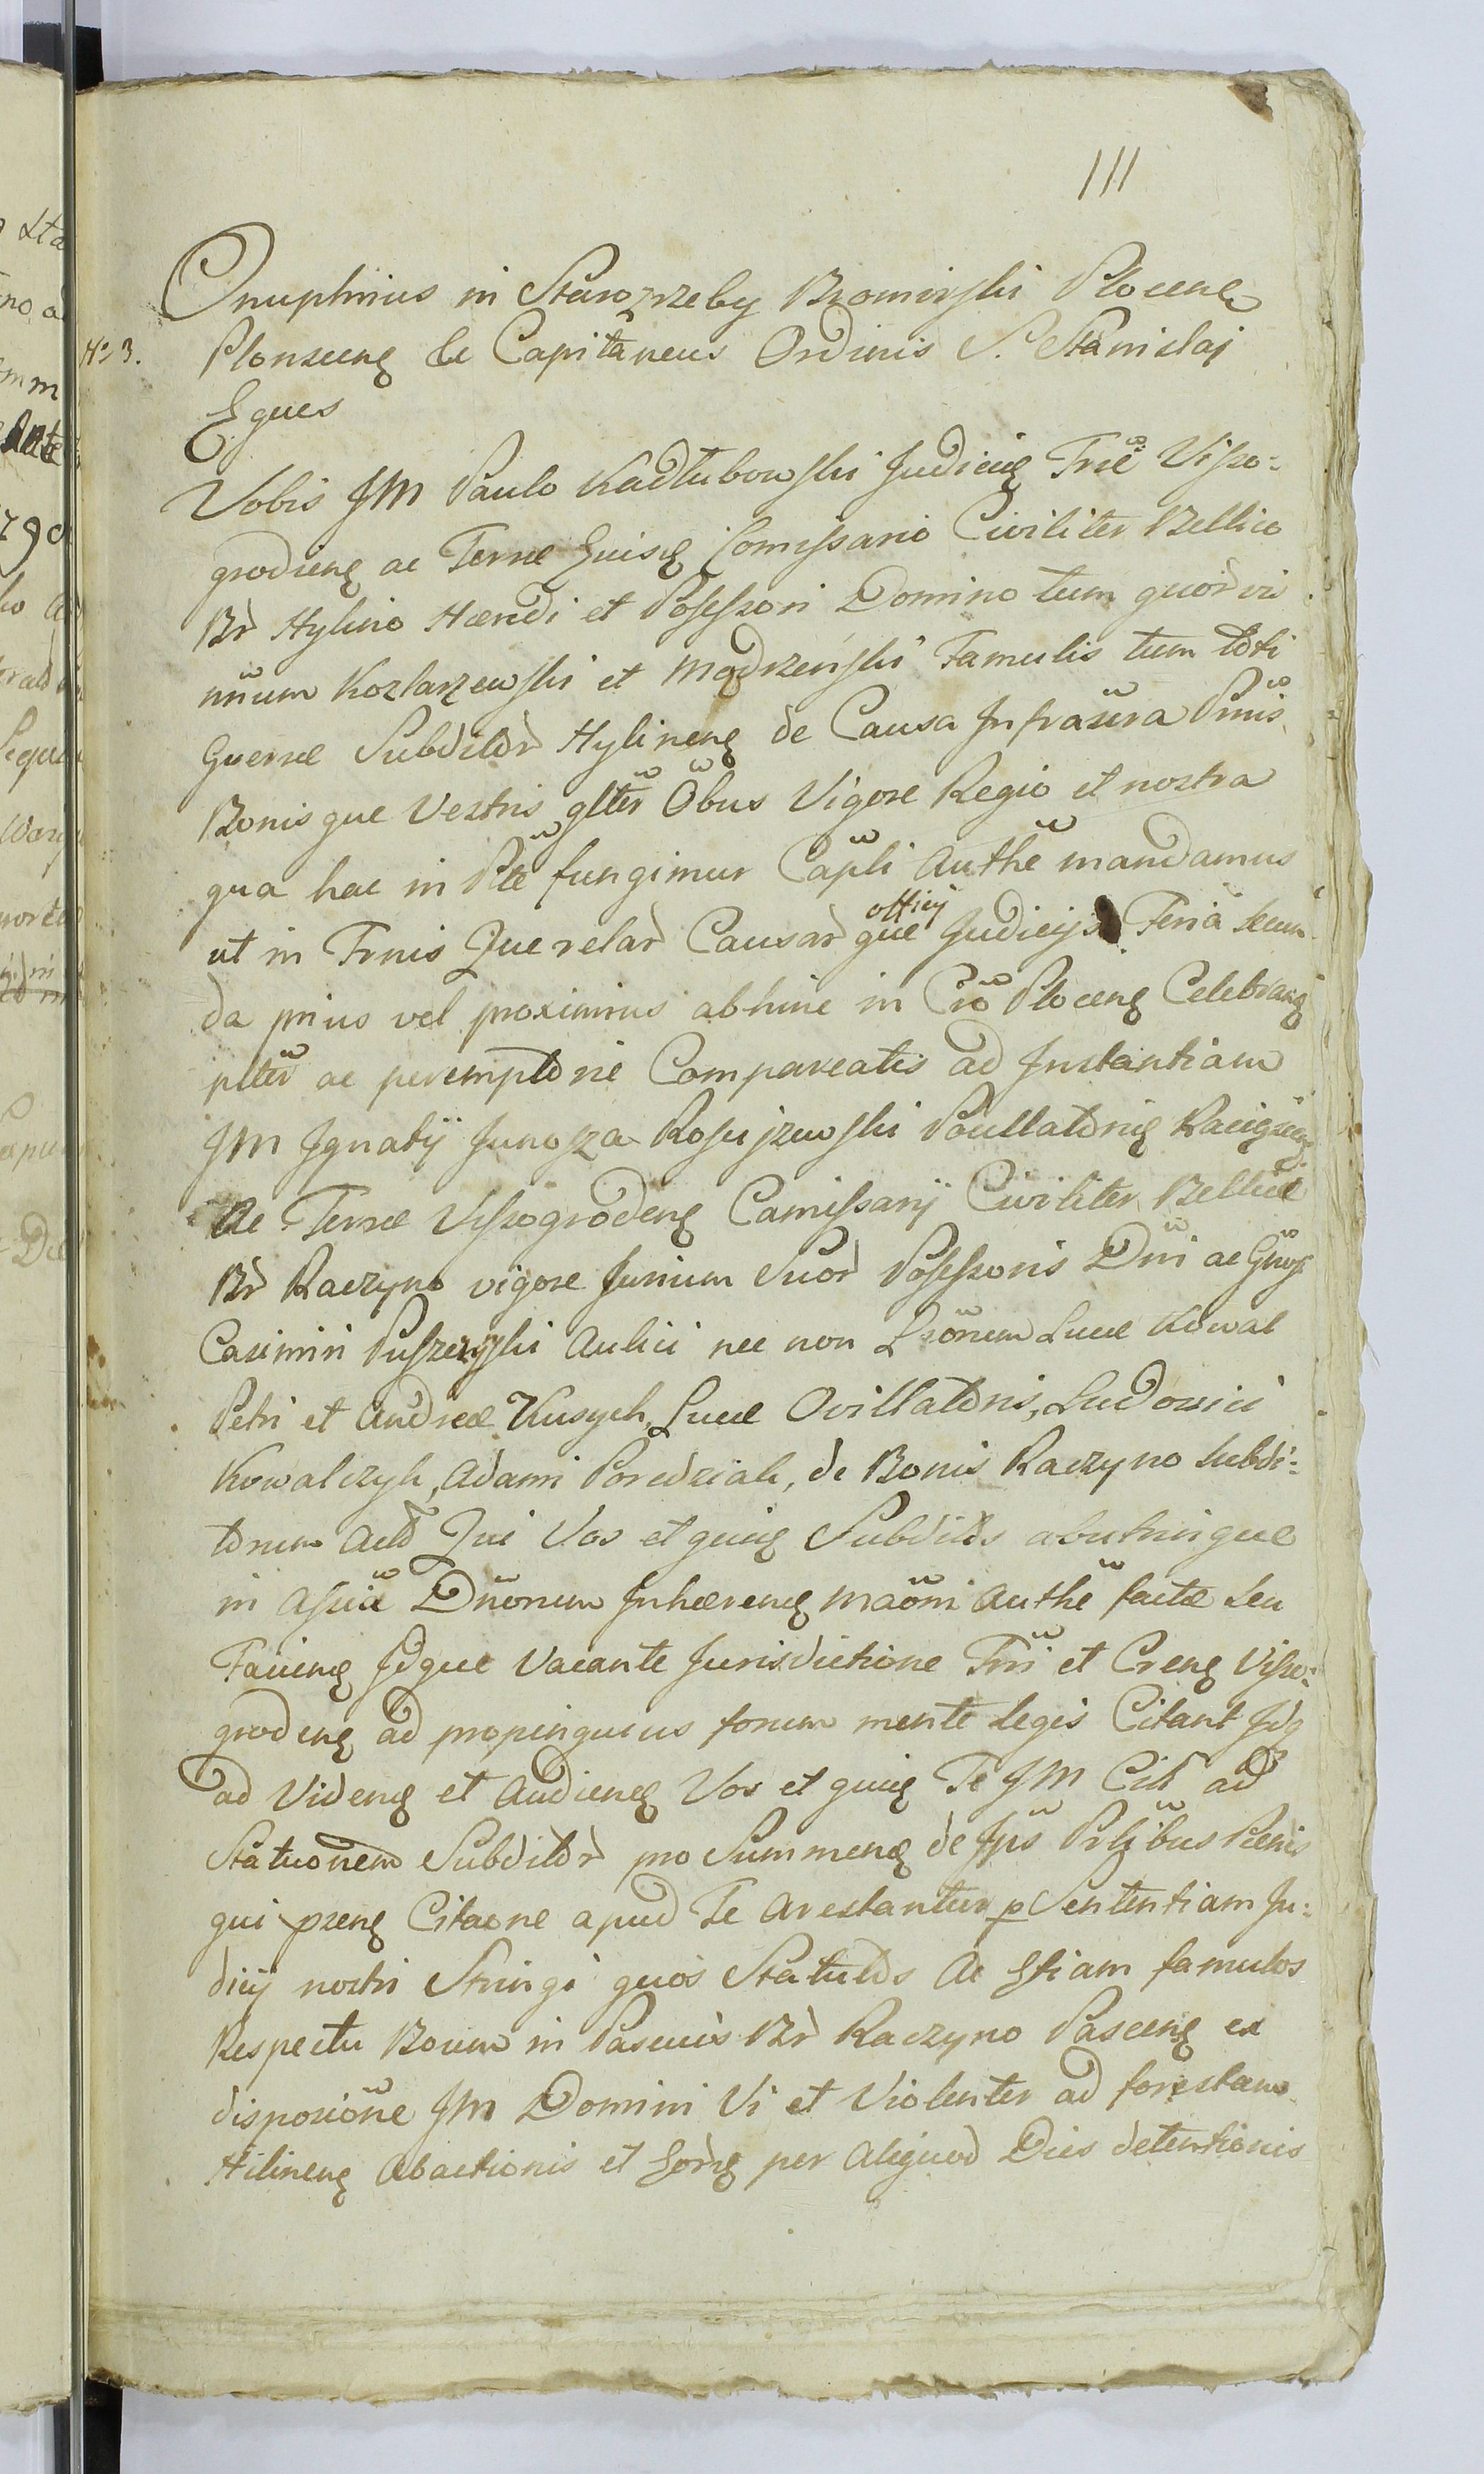 111
Onuphrius in Starozrzeby Bromirski Plocens
N: 3. Plonscens &c Capitaneus Ordinis S. Stanislai
Eques
Vobis JM Paulo Kadłubowski Judici Trre Visso-
grodiens ac Terræ Comissario Civiliter Bellico
Br Hylino Hæredi et Possessori Domino tum
nnum Kozlarzewski et Modrzenski Famulis tum toti
Gverræ Subditor Hylinens de Causa Infrascra Psnis
Bonisque Vestris glter Obus Vigore Regio et nostra
qua hac in Pte fungimur Capli Authe mandamus
ut in Trnis Querelar Causarque officij Judicijs Feria secun-
da prius vel proximius abhinc in Cro Plocens Celebrans
plter ac peremptorie Compareatis ad Instantiam
JM Ignatij Junosza Rosciszewski Pocillatoris Raciąscens
Ac Terræ Vissogrodens Comissarij Civiliter Bellici
Br Raczyno vigore Jurium Suor Possessoris Dni ac Gnosi
Casimiri Aulici nec non Lrorum Lucæ Kowal
Petri et Andreæ Kusych, Lucæ Ovillatoris, Ludovici
Kowalczyk, Adami Poredziak, de Bonis Raczyno subdi-
torum Acto Qui Vos et quies Subditos abutrinque
in Assia Dnorum Inhærens maoni Authe factæ seu
Faciens Idque Vacante Jurisdictione Trri et Crens Visso-
grodens ad propinquius forum mente legis Citant Idq
ad Videns et Audiens Vos et quies Te JM Citt ad
Statuonem Subditor pro Summens de Ips Prlibus Pœnis
qui præns Citaone apud Te Arestantur p Sententiam Ju-
dicij nostri Stringi quos Statutos Ac Etiam famulos
Respectu Boum in Pascuis Br Raczyno Pascens ex
disposione JM Domini Vi et Violenter ad forestam
Hilinens Abactionis et per Aliquod Dies detentionis